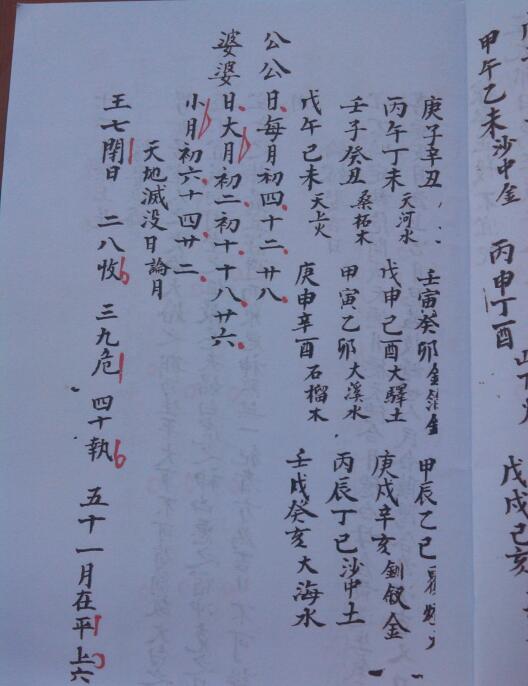 戊
甲午乙未沙中金　丙申丁酉山下火　戊戌己亥
庚子辛丑　壬寅癸卯金箔金　甲辰乙巳
丙午丁未天河水　戊申己酉大驛土　庚戌辛亥釧釵金
壬子癸丑桑柘木　甲寅乙卯大溪水　丙辰丁巳沙中土
戊午己未天上火　庚申辛酉石榴木　壬戌癸亥大海水
公公日每月初四十二廿八
婆婆日大月初二初十十八廿六
小月初六十四廿二
天地滅没日論月
王七閉日　二八收　三九危　四十執　五十一月在平上六